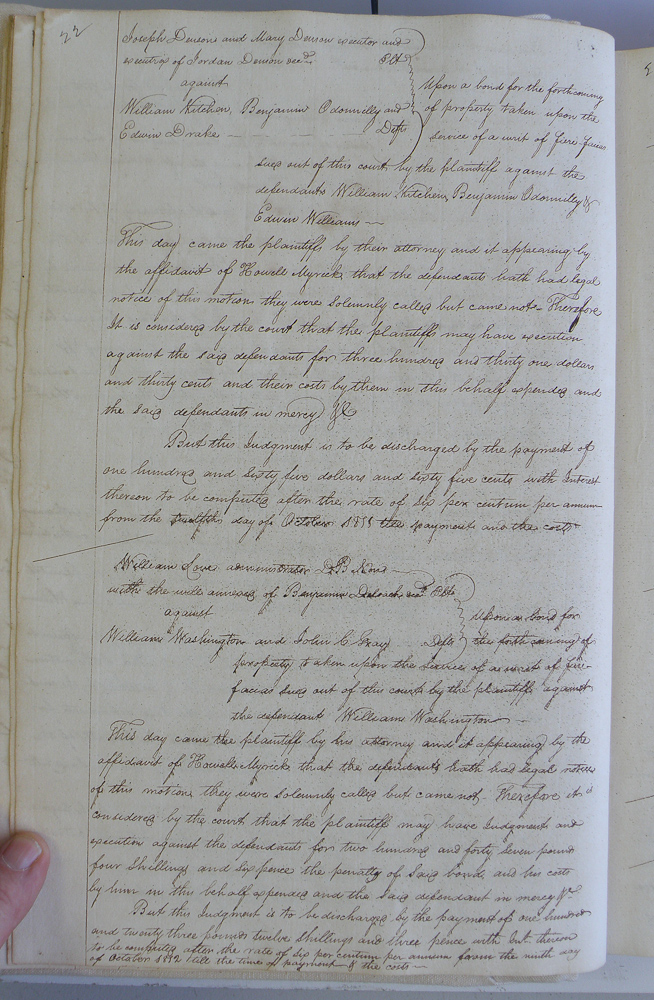 22
Joseph Denson and Mary Denson executor and
executrix of Jordan Denson decd. Plts
against
William Kitchen, Benjamin Odonnelly and
Edwin Drake Defts
Upon a bond for the forthcoming
of property taken upon the
service of a writ of fiere facias
sued out of this court by the plaintiff against the
defendants William Kitchen, Benjamin Odonnelly &
Edwin Williams
This day came the plaintiffs by their attorney and it appearing by
the affidavit of Howell Myrick that the defendants hath had legal
notice of this motion they were solemnly called but came not - Therefore
It is considered by the court that the plaintiffs may have execution
against the said defendants for three hundred and thirty one dollars
and thirty cents and their costs by them in this behalf expended and
the said defendants in mercy &c
But this Judgment is to be discharged by the payment of
one hundred and sixty five dollars and sixty five cents with Interest
thereon to be computed after the rate of six per centum per annum
from the twelfth day of October the payment and the costs
William Love administrator D. B. Non
with the will annexed of Benjamin Deloach decd. Plts
against
William Washington and John C Gray Defts
Upon a bond for
the forthcoming of
property taken upon the service of a writ of fiere
facias sued out of this court by the plaintiff against
the defendant William Washington
This day came the plaintiff by his attorney and it appearing by the
affidavit of Howell Myrick that the defendants hath had legal notice
of this motion they were solemnly called but came not - Therefore it is
considered by the court that the plaintiff may have Judgment and
execution against the defendants for two hundred and forty seven pounds
four Shillings and sixpence the penalty of said bond and his costs
by him in this behalf expended and the said defendant in mercy &c
But this Judgment is to be discharged by the payment of one hundred
and twenty three pounds twelve shillings and three pence with Int. thereon
to be computed after the rate of six per centum per annum from the ninth day
of October 1812 till the time of payment & the costs